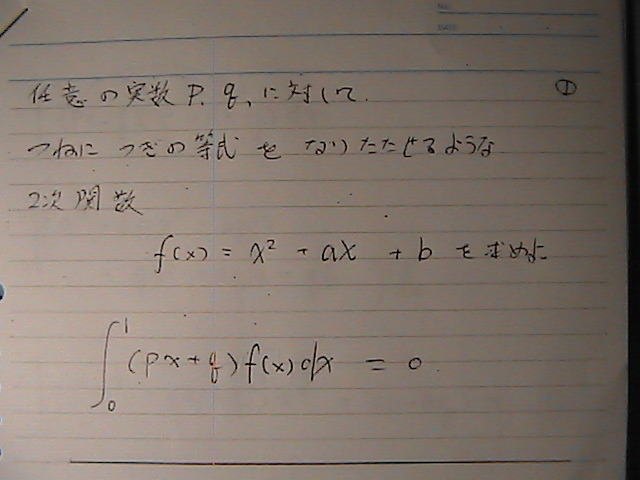 No.
DATE
任意の実数 P. q, に対して. ①
つねに つぎの等式 を なりたたせるような
2次関数
f(x) = x² + ax + b を求めよ
∫₀¹ (px+q) f(x) dx = 0.